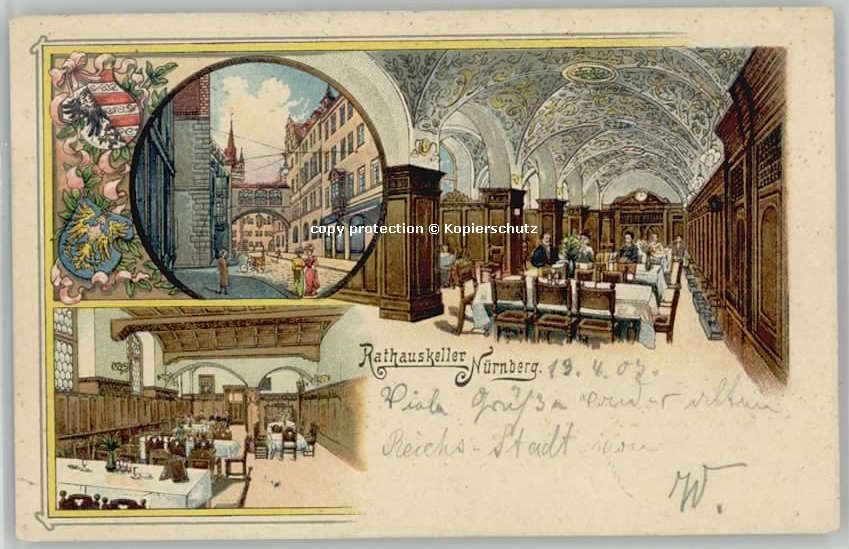 copy protection © Kopierschutz
Rathauskeller
Nürnberg. 13.4.07.
Viele Grüße von der alten
Reichs-Stadt von
W.